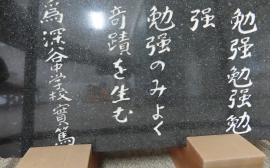 勉強勉強勉
強
勉強のみよく
奇蹟を生む
為 深谷中学校 實篤